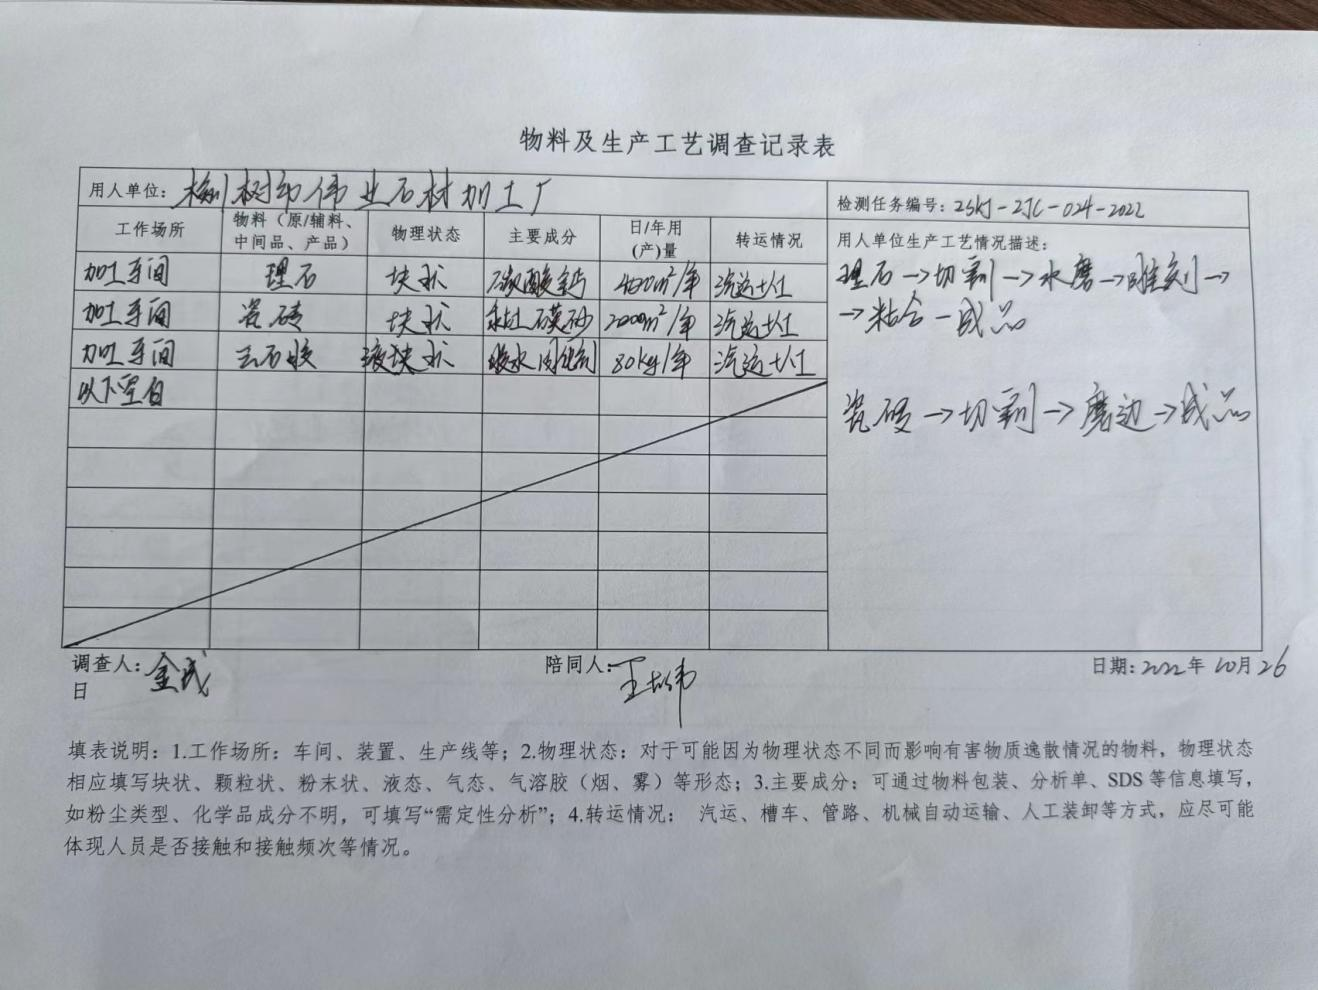 物料及生产工艺调查记录表
用人单位：榆树市伟业石材加工厂
检测任务编号：ZSKJ-ZJC-024-2022
工作场所 物料（原/辅料、中间品、产品） 物理状态 主要成分 日/年用(产)量 转运情况
用人单位生产工艺情况描述：
加工车间 理石 块状 碳酸钙 4000m²/年 汽运+人工
加工车间 瓷砖 块状 2000m²/年 汽运+人工
加工车间 云石胶 状 胶水 固化剂 80kg/年 汽运+人工
以下空白
理石→切割→水磨→雕刻→
→粘合-成品
瓷砖→切割→磨边→成品
调查人：金武
陪同人：王大伟
日期：2022年10月26
日
填表说明：1.工作场所：车间、装置、生产线等；2.物理状态：对于可能因为物理状态不同而影响有害物质逸散情况的物料，物理状态
相应填写块状、颗粒状、粉末状、液态、气态、气溶胶（烟、雾）等形态；3.主要成分：可通过物料包装、分析单、SDS 等信息填写，
如粉尘类型、化学品成分不明，可填写“需定性分析”；4.转运情况： 汽运、槽车、管路、机械自动运输、人工装卸等方式，应尽可能
体现人员是否接触和接触频次等情况。